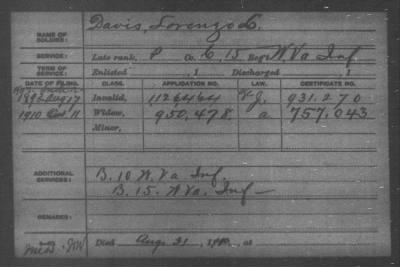 NAME OF SOLDIER: Davis, Lorenzo L.
SERVICE: Late rank, P Co. C, 15 Reg't W Va Inf
TERM OF SERVICE: Enlisted , 1 Discharged , 1
DATE OF FILING. CLASS. APPLICATION NO. LAW. CERTIFICATE NO.
1892 Aug 17 Invalid, 1126464 931.270
1910 Oct 11 Widow, 950,478 a 757.043
Minor,
ADDITIONAL SERVICES: B. 10 W. Va Inf.
B. 15. W Va. Inf
REMARKS:
Died Aug. 31, 1910, at